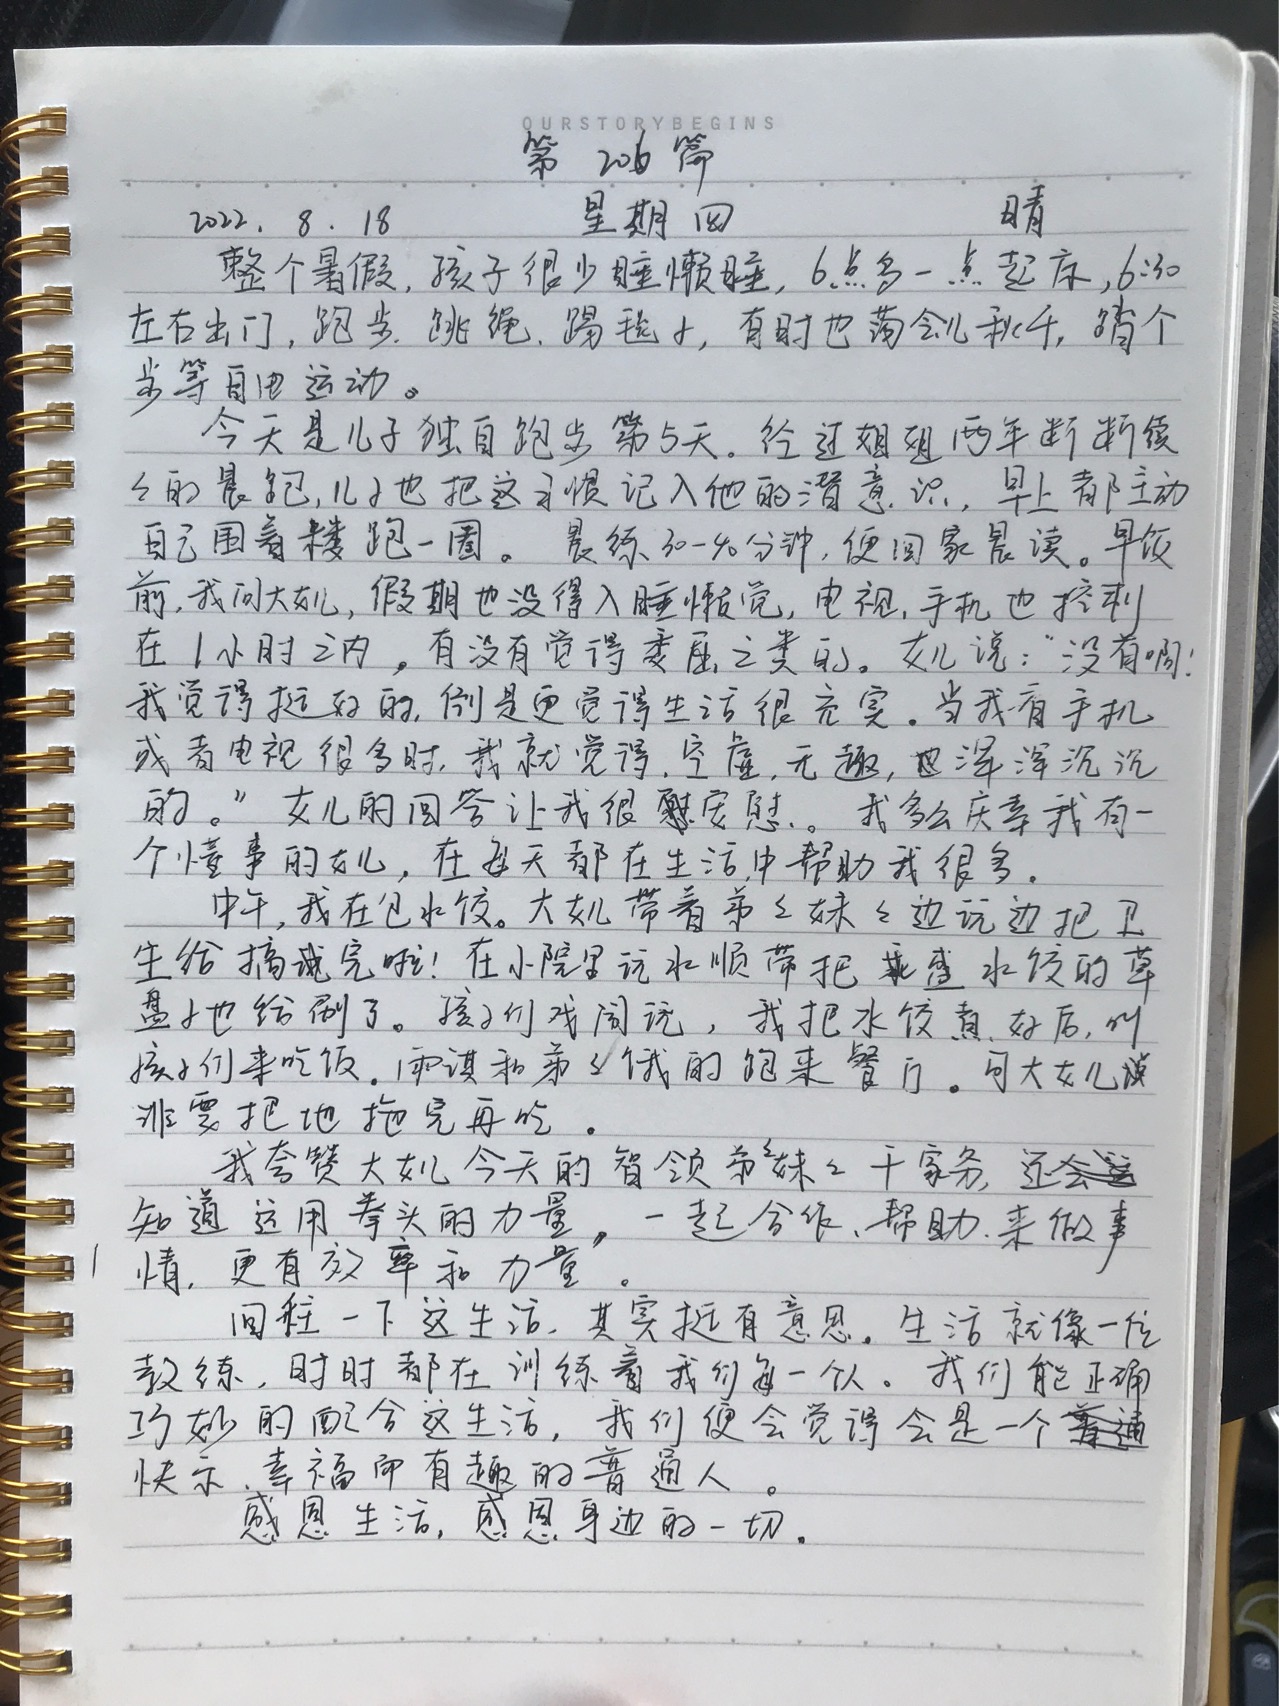 OURSTORYBEGINS
第 206 篇
2022. 8. 18 星期四 晴
整个暑假,孩子很少睡懒睡,6点多一点起床,6:30
左右出门,跑步.跳绳.踢毽子,有时也荡会儿秋千,踏个
步等自由运动。
今天是儿子独自跑步第5天。经过姐姐两年断断续
々的晨跑,儿子也把这习惯记入他的潜意识,早上都主动
自己围着楼跑一圈。晨练30-40分钟,便回家晨读。早饭
前,我问大女儿,假期也没得入睡懒觉,电视,手机也控制
在1小时之内,有没有觉得委屈之类的。女儿说:"没有啊!
我觉得挺好的,倒是更觉得生活很充实。当我看手机
或者电视很多时,我就觉得,空虚,无趣,也浑浑沉沉
的。"女儿的回答让我很安慰。我多么庆幸我有一
个懂事的女儿,在每天都在生活中帮助我很多.
中午,我在包水饺。大女儿带着弟々妹々边玩边把卫
生给搞完啦!在小院里玩水顺带把盛水饺的草
盘子也给刷了。孩子们戏闹玩,我把水饺煮好后,叫
孩子们来吃饭.雨淇和弟々饿的跑来餐厅。可大女儿
非要把地拖完再吃.
我夸赞大女儿今天的智领弟々妹々干家务,还
知道运用拳头的力量,一起合作、帮助.来做事
情,更有效率和力量。
回程一下这生活,其实挺有意思。生活就像一位
教练,时时都在训练着我们每一个人。我们能正确
巧妙的配合这生活,我们便会觉得会是一个
快乐、幸福而有趣的普通人。
感恩生活,感恩身边的一切.